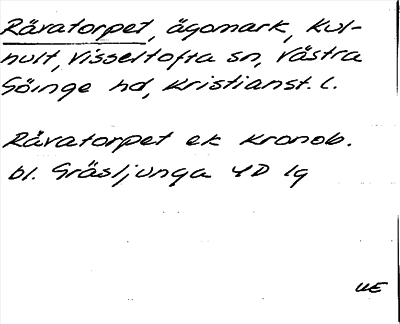 Råvatorpet, ägomark, Kul-
hult, Visseltofta sn, Västra
Göinge hd, Kristianst. l.
Råvatorpet ek Kronob.
bl. Gräsljunga 4D lg
UE